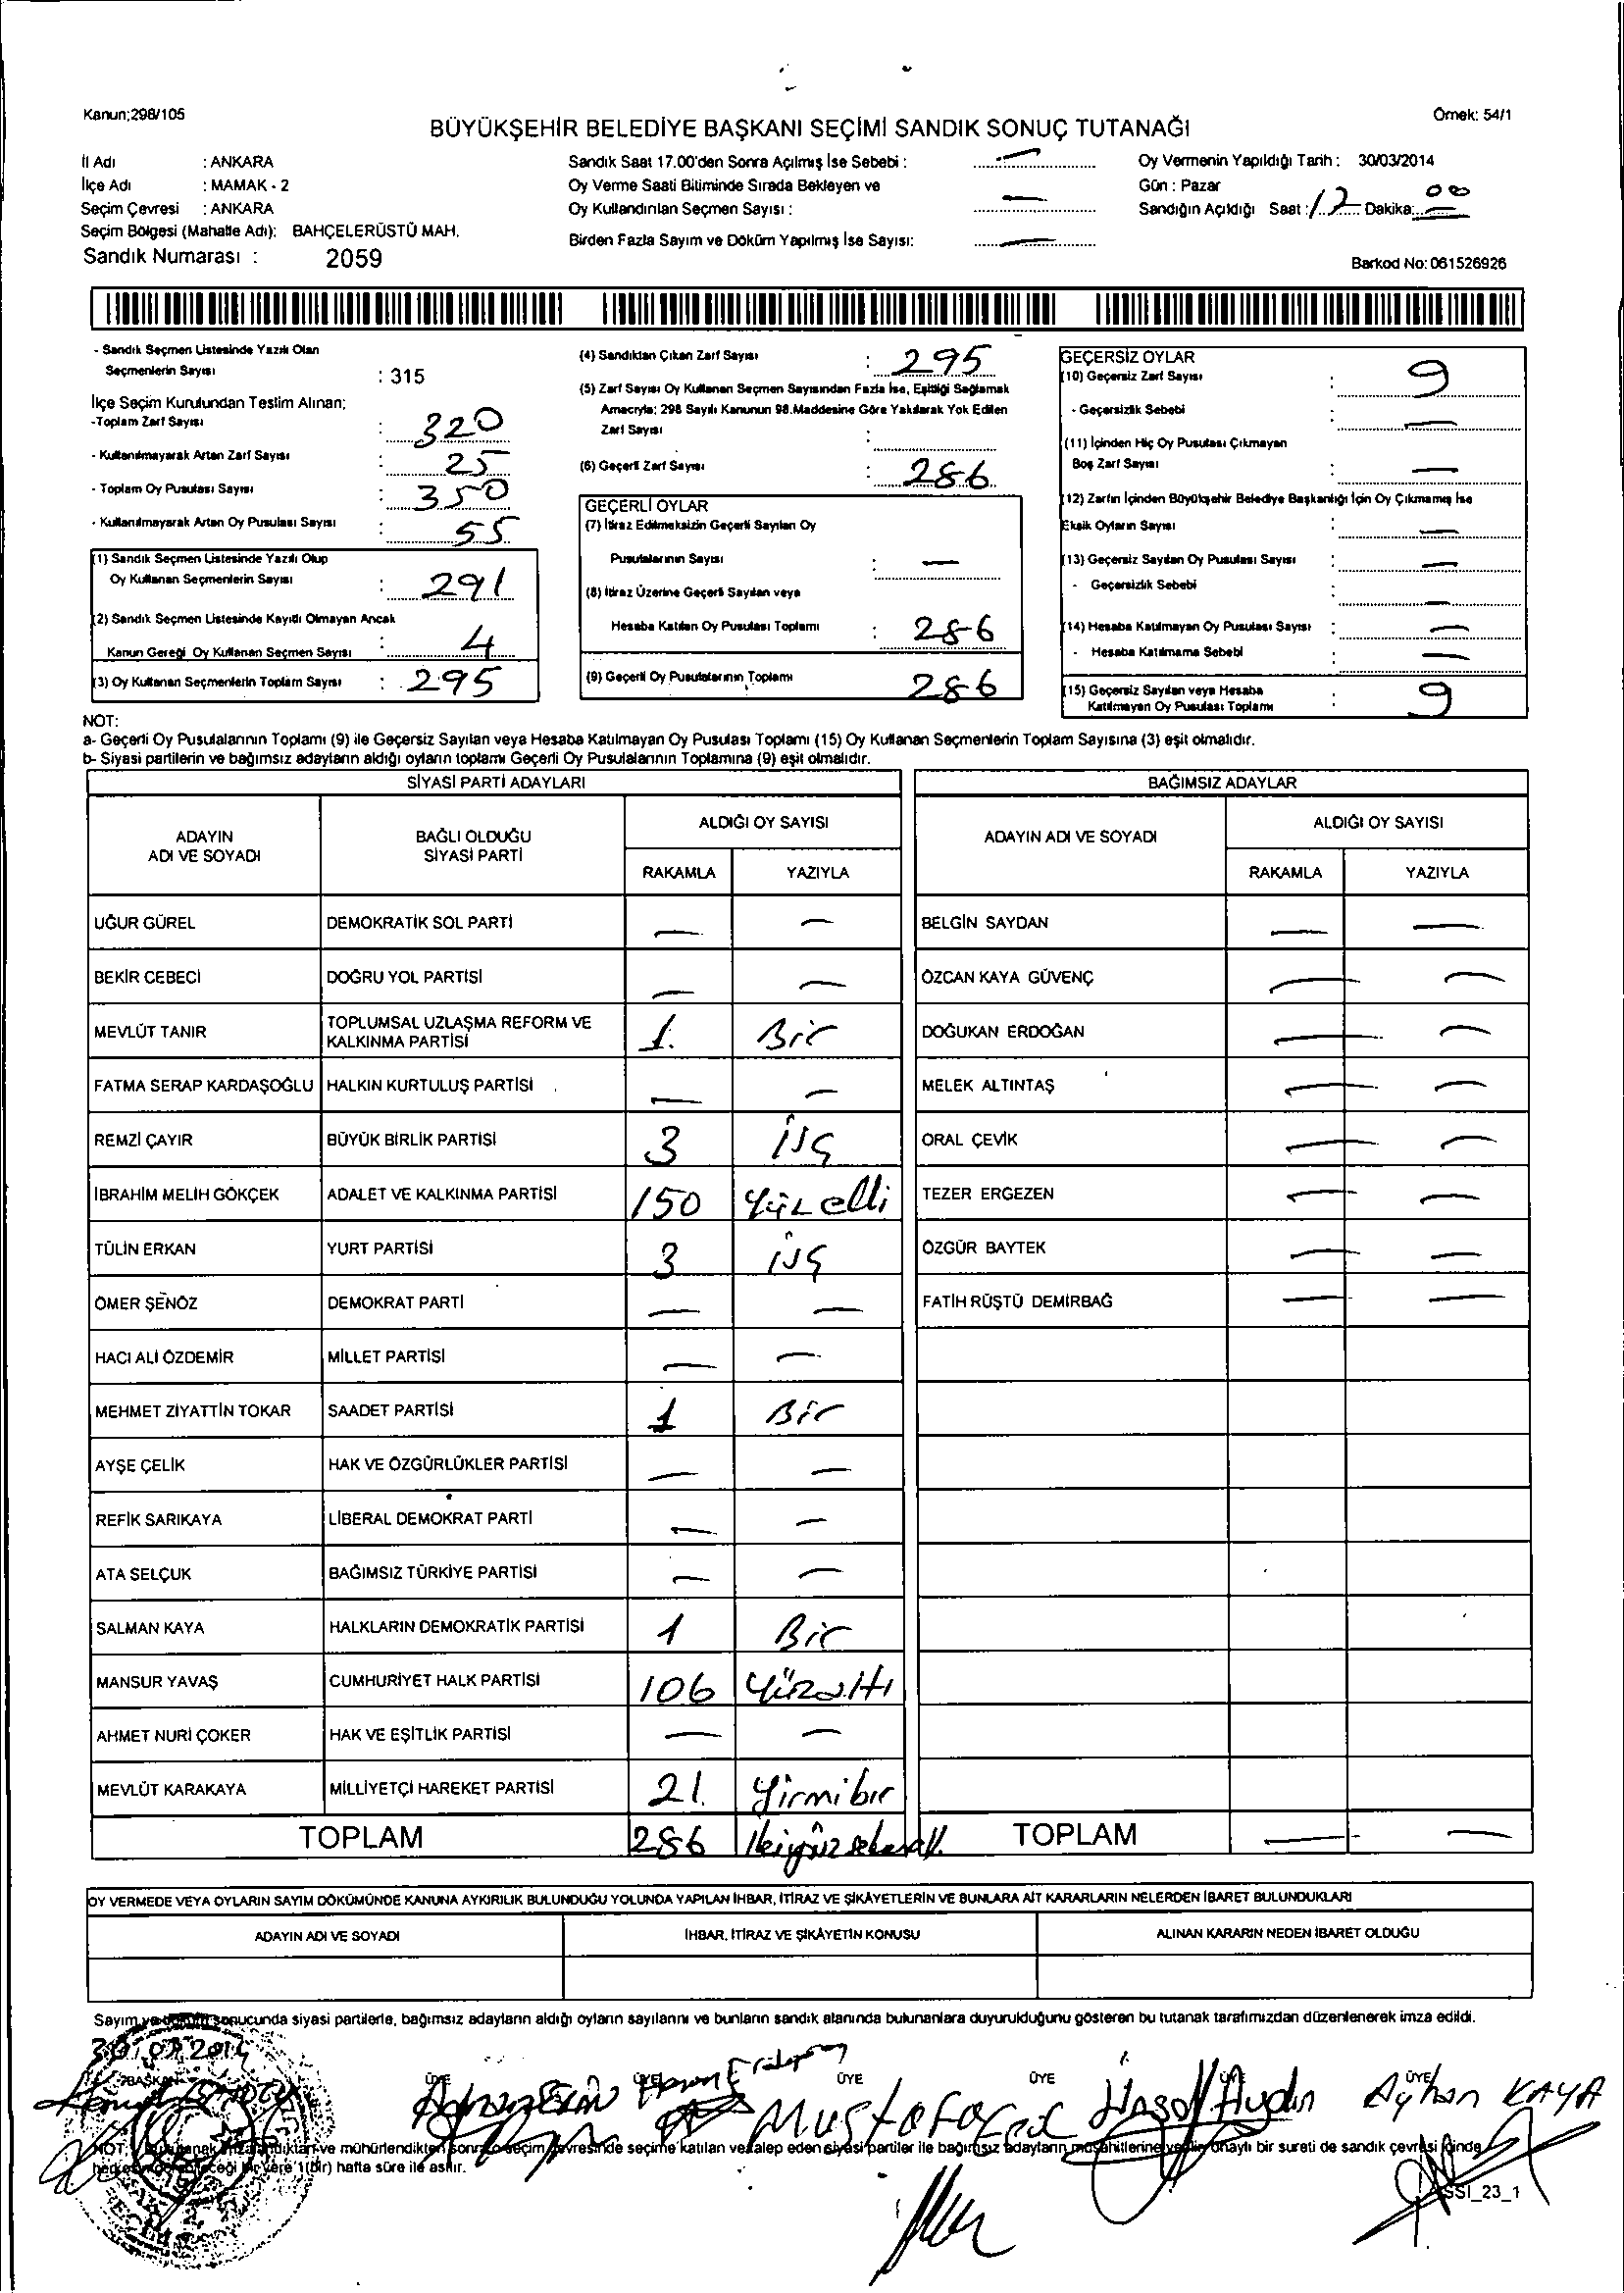 Kanun;298/105
Örnek: 54/1
BÜYÜKŞEHİR BELEDİYE BAŞKANI SEÇİMİ SANDIK SONUÇ TUTANAĞI
İl Adı : ANKARA
İlçe Adı : MAMAK - 2
Seçim Çevresi : ANKARA
Seçim Bölgesi (Mahalle Adı): BAHÇELERÜSTÜ MAH.
Sandık Numarası : 2059
Sandık Saat 17.00'den Sonra Açılmış İse Sebebi : —
Oy Verme Saati Bitiminde Sırada Bekleyen ve
Oy Kullandırılan Seçmen Sayısı : —
Birden Fazla Sayım ve Döküm Yapılmış İse Sayısı: —
Oy Vermenin Yapıldığı Tarih : 30/03/2014
Gün : Pazar
Sandığın Açıldığı Saat : 17 Dakika: 00
Barkod No: 061526926
- Sandık Seçmen Listesinde Yazılı Olan
Seçmenlerin Sayısı : 315
İlçe Seçim Kurulundan Teslim Alınan;
-Toplam Zarf Sayısı : 320
- Kullanılmayarak Artan Zarf Sayısı : 25
- Toplam Oy Pusulası Sayısı : 350
- Kullanılmayarak Artan Oy Pusulası Sayısı : 55
(1) Sandık Seçmen Listesinde Yazılı Olup
Oy Kullanan Seçmenlerin Sayısı : 291
(2) Sandık Seçmen Listesinde Kayıtlı Olmayan Ancak
Kanun Gereği Oy Kullanan Seçmen Sayısı : 4
(3) Oy Kullanan Seçmenlerin Toplam Sayısı : 295
(4) Sandıktan Çıkan Zarf Sayısı : 295
(5) Zarf Sayısı Oy Kullanan Seçmen Sayısından Fazla İse, Eşitliği Sağlamak
Amacıyla; 298 Sayılı Kanunun 98.Maddesine Göre Yakılarak Yok Edilen
Zarf Sayısı :
(6) Geçerli Zarf Sayısı : 286
GEÇERLİ OYLAR
(7) İtiraz Edilmeksizin Geçerli Sayılan Oy
Pusulalarının Sayısı : —
(8) İtiraz Üzerine Geçerli Sayılan veya
Hesaba Katılan Oy Pusulası Toplamı : 286
(9) Geçerli Oy Pusulalarının Toplamı 286
GEÇERSİZ OYLAR
(10) Geçersiz Zarf Sayısı : 9
- Geçersizlik Sebebi : —
(11) İçinden Hiç Oy Pusulası Çıkmayan
Boş Zarf Sayısı : —
(12) Zarfın İçinden Büyükşehir Belediye Başkanlığı İçin Oy Çıkmamış İse
Eksik Oyların Sayısı : —
(13) Geçersiz Sayılan Oy Pusulası Sayısı : —
- Geçersizlik Sebebi : —
(14) Hesaba Katılmayan Oy Pusulası Sayısı : —
- Hesaba Katılmama Sebebi : —
(15) Geçersiz Sayılan veya Hesaba
Katılmayan Oy Pusulası Toplamı : 9
NOT:
a- Geçerli Oy Pusulalarının Toplamı (9) ile Geçersiz Sayılan veya Hesaba Katılmayan Oy Pusulası Toplamı (15) Oy Kullanan Seçmenlerin Toplam Sayısına (3) eşit olmalıdır.
b- Siyasi partilerin ve bağımsız adayların aldığı oyların toplamı Geçerli Oy Pusulalarının Toplamına (9) eşit olmalıdır.
SİYASİ PARTİ ADAYLARI
ADAYIN ADI VE SOYADI
BAĞLI OLDUĞU SİYASİ PARTİ
ALDIĞI OY SAYISI
RAKAMLA YAZIYLA
UĞUR GÜREL DEMOKRATİK SOL PARTİ — —
BEKİR CEBECİ DOĞRU YOL PARTİSİ — —
MEVLÜT TANIR TOPLUMSAL UZLAŞMA REFORM VE KALKINMA PARTİSİ 1. Bir
FATMA SERAP KARDAŞOĞLU HALKIN KURTULUŞ PARTİSİ — —
REMZİ ÇAYIR BÜYÜK BİRLİK PARTİSİ 3 üç
İBRAHİM MELİH GÖKÇEK ADALET VE KALKINMA PARTİSİ 150 Yüz elli
TÜLİN ERKAN YURT PARTİSİ 3 üç
ÖMER ŞENÖZ DEMOKRAT PARTİ — —
HACI ALİ ÖZDEMİR MİLLET PARTİSİ — —
MEHMET ZİYATTİN TOKAR SAADET PARTİSİ 1 Bir
AYŞE ÇELİK HAK VE ÖZGÜRLÜKLER PARTİSİ — —
REFİK SARIKAYA LİBERAL DEMOKRAT PARTİ — —
ATA SELÇUK BAĞIMSIZ TÜRKİYE PARTİSİ — —
SALMAN KAYA HALKLARIN DEMOKRATİK PARTİSİ 1 Bir
MANSUR YAVAŞ CUMHURİYET HALK PARTİSİ 106 Yüzaltı
AHMET NURİ ÇOKER HAK VE EŞİTLİK PARTİSİ — —
MEVLÜT KARAKAYA MİLLİYETÇİ HAREKET PARTİSİ 21. Yirmibir
TOPLAM 286 İkiyüz
BAĞIMSIZ ADAYLAR
ADAYIN ADI VE SOYADI
ALDIĞI OY SAYISI
RAKAMLA YAZIYLA
BELGİN SAYDAN — —
ÖZCAN KAYA GÜVENÇ — —
DOĞUKAN ERDOĞAN — —
MELEK ALTINTAŞ — —
ORAL ÇEVİK — —
TEZER ERGEZEN — —
ÖZGÜR BAYTEK — —
FATİH RÜŞTÜ DEMİRBAĞ — —
TOPLAM — —
OY VERMEDE VEYA OYLARIN SAYIM DÖKÜMÜNDE KANUNA AYKIRILIK BULUNDUĞU YOLUNDA YAPILAN İHBAR, İTİRAZ VE ŞİKÂYETLERİN VE BUNLARA AİT KARARLARIN NELERDEN İBARET BULUNDUKLARI
ADAYIN ADI VE SOYADI
İHBAR, İTİRAZ VE ŞİKÂYETİN KONUSU
ALINAN KARARIN NEDEN İBARET OLDUĞU
Sayım sonucunda siyasi partilerle, bağımsız adayların aldığı oyların sayılarını ve bunların sandık alanında bulunanlara duyurulduğunu gösteren bu tutanak tarafımızdan düzenlenerek imza edildi.
30.03.2014
BAŞKAN ÜYE ÜYE ÜYE ÜYE ÜYE ÜYE
Mustafa Aydın Ayhan KAYA
NOT: ve mühürlendikten sonra seçim çevresinde seçime katılan ve talep eden siyasi partiler ile bağımsız adayların müşahitlerine onaylı bir sureti de sandık çevresi içinde
1(bir) hafta süre ile asılır.
SSI_23_1